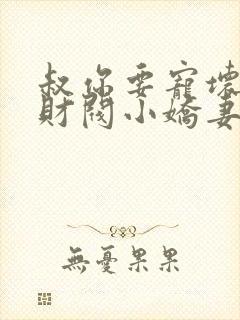 叔你要寵壞
財閥小嬌妻
無憂果果